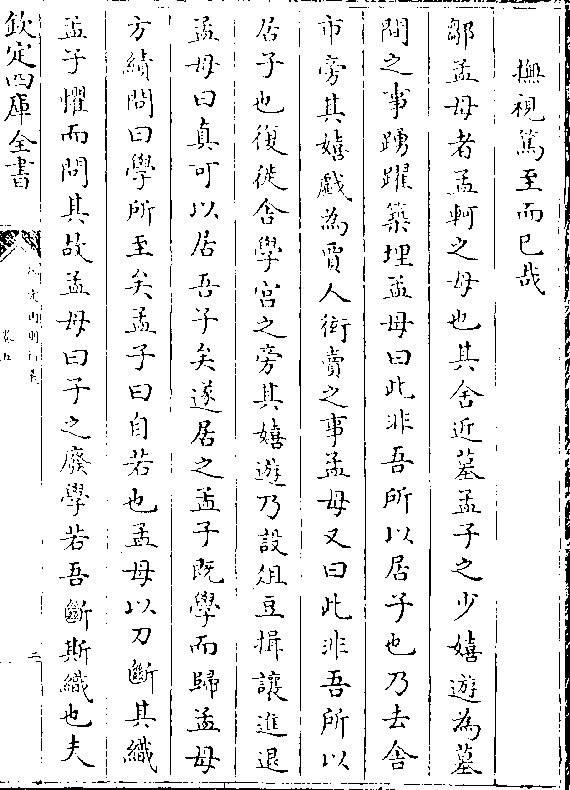 撫視篤至而已哉
鄒孟母者孟軻之母也其舍近墓孟子之少嬉遊為墓
間之事踴躍築埋孟母曰此非吾所以居子也乃去舍
市旁其嬉戲為賈人衒賣之事孟母又曰此非吾所以
居子也復徙舍學宫之旁其嬉遊乃設俎豆揖讓進退
孟母曰真可以居吾子矣遂居之孟子既學而歸孟母
方績問曰學所至矣孟子曰自若也孟母以刀斷其織
孟子懼而問其故孟母曰子之廢學若吾斷斯織也夫
欽定四庫全書
二